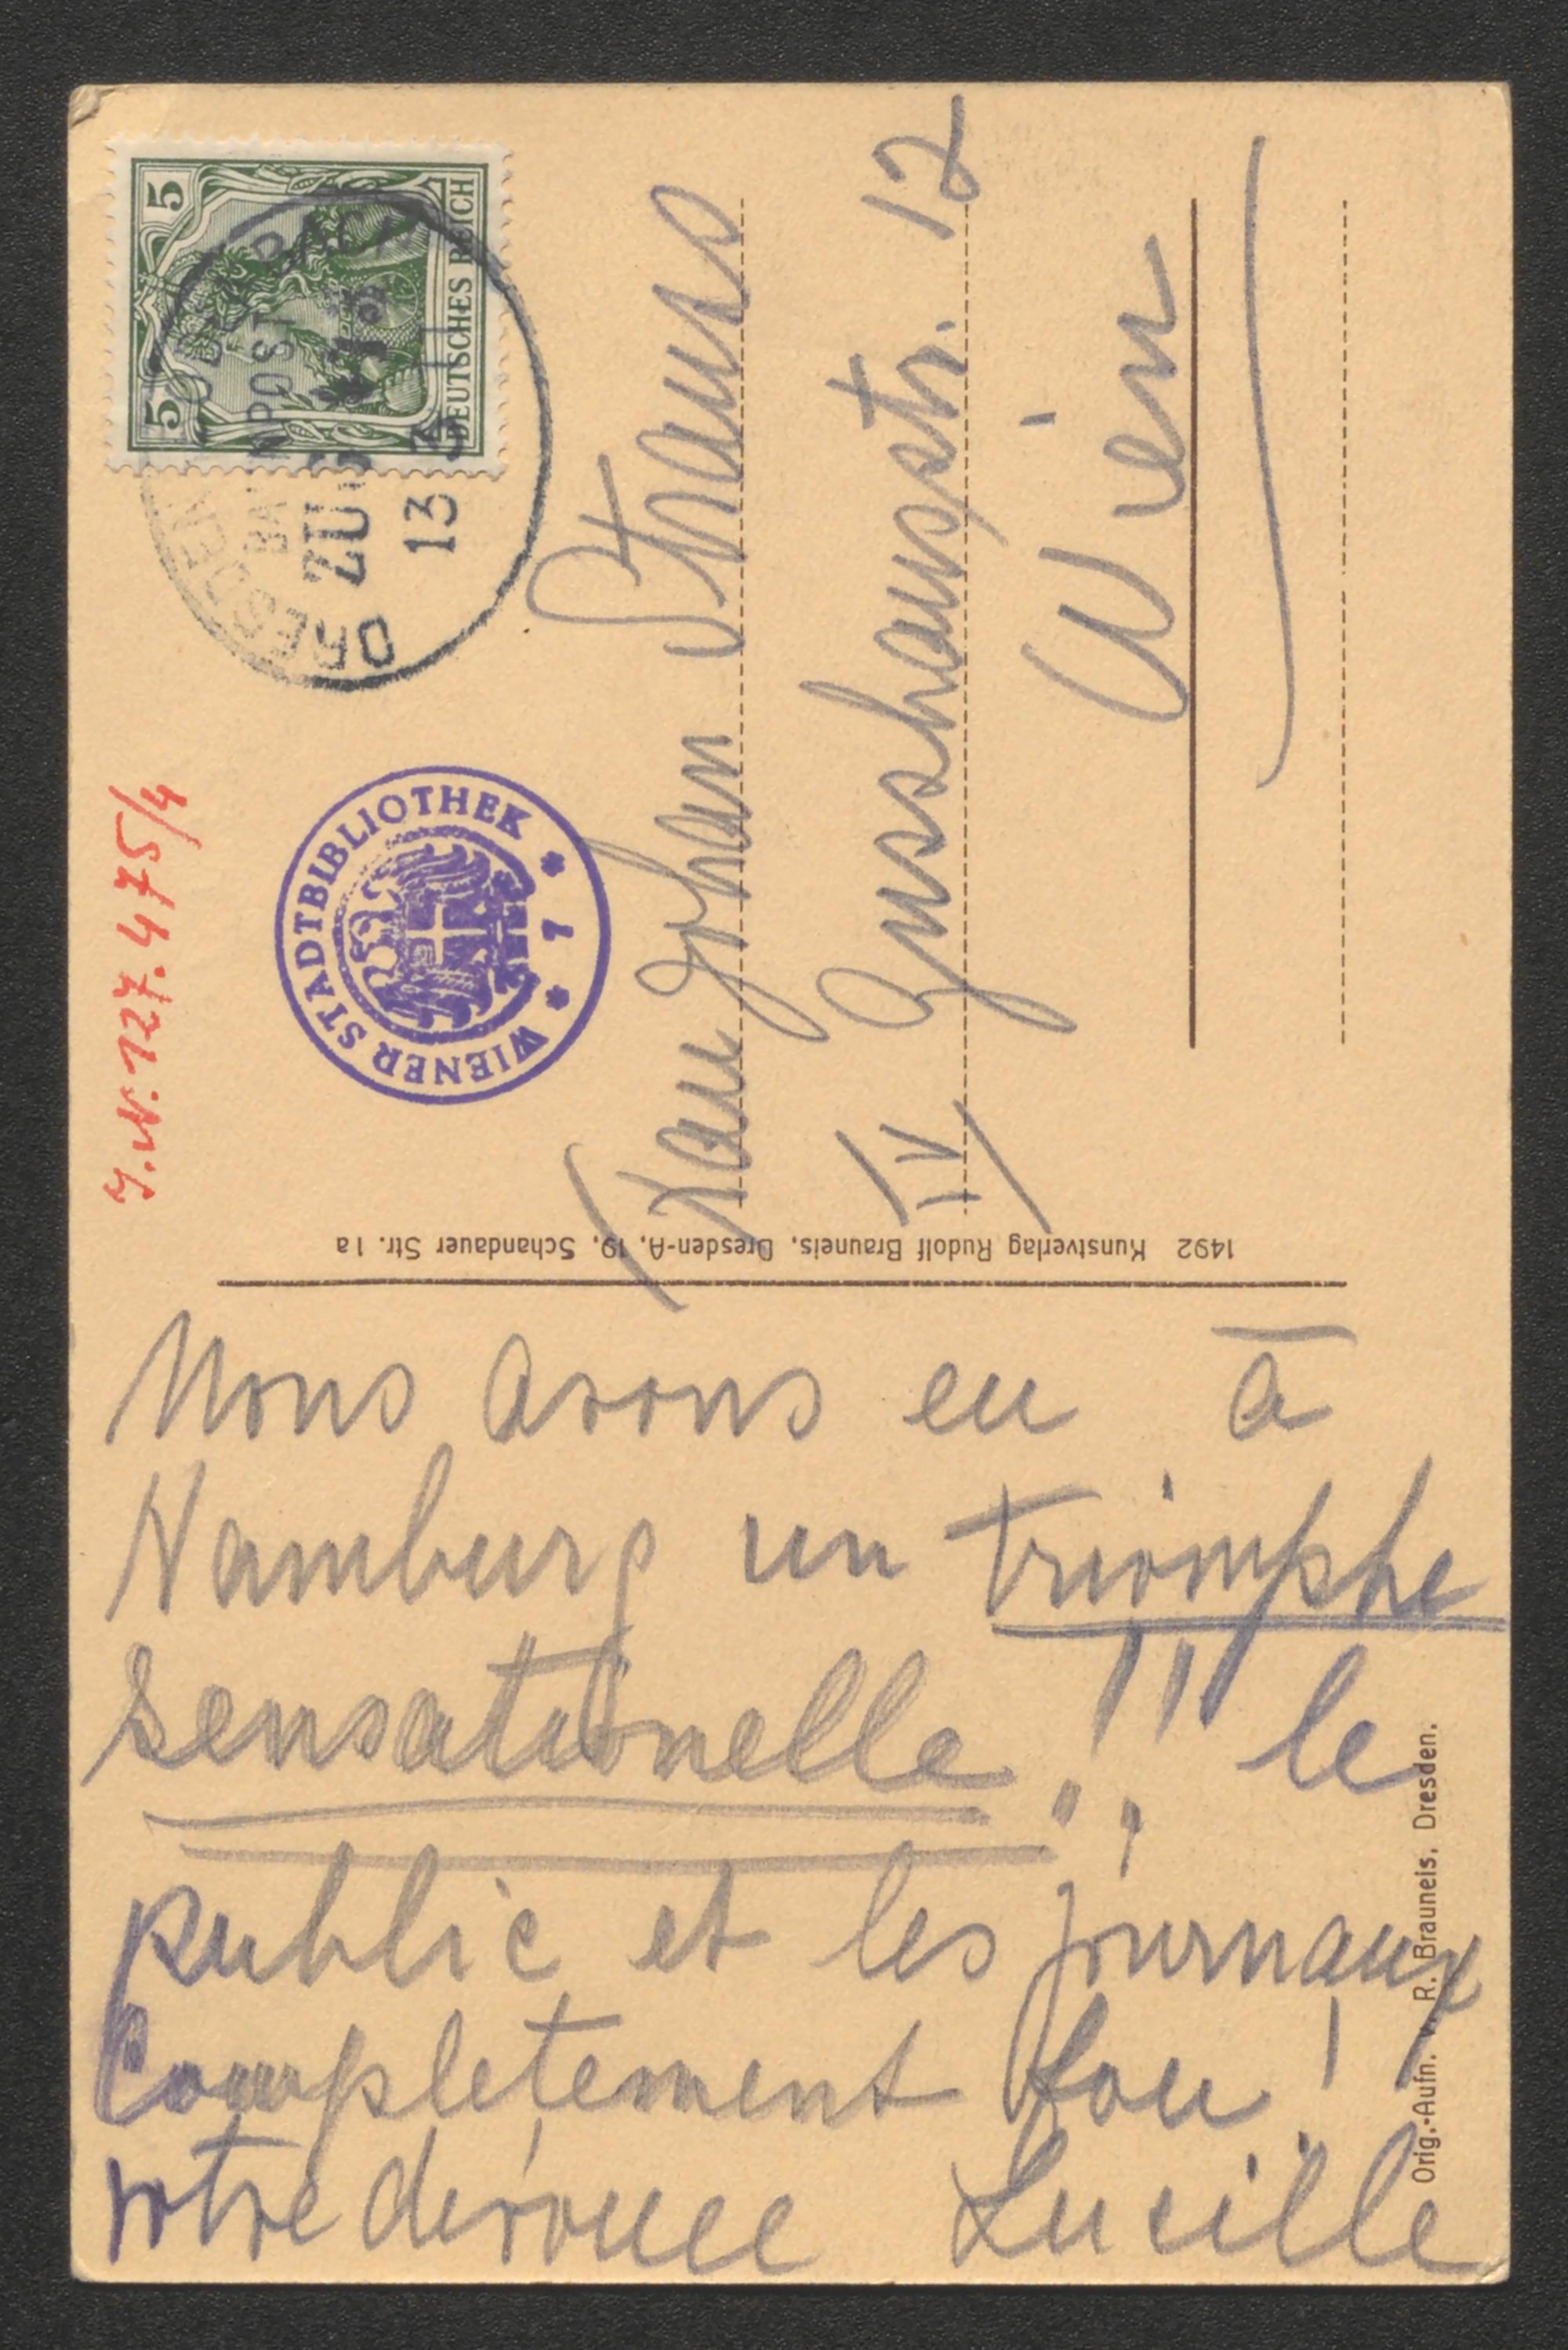 Nous avons eu à
Hamburg un triomphe
sensationelle!!! le
public et les journaux
completement fou!
votre devouee Lucille
Frau Johan Strauss
IV Gusshausstr. 12
Wien
J.N. 127.475/4
WIENER STADTBIBLIOTHEK * 7 *
5 5
DEUTSCHES REICH
DRESDEN
ZUG
13
1492 Kunstverlag Rudolf Brauneis, Dresden-A, 19, Schandauer Str. 1a
Orig.-Aufn. v. R. Brauneis, Dresden.